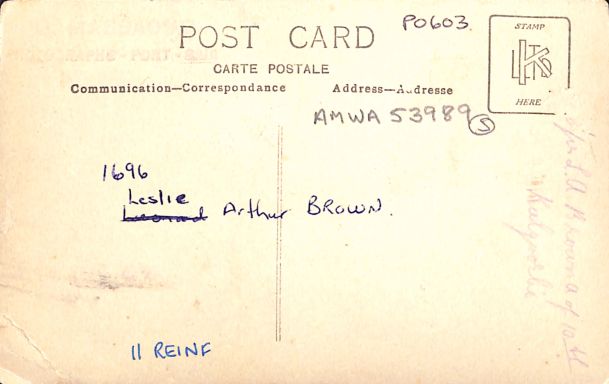 POST CARD
PO603
CARTE POSTALE
Communication—Correspondance
Address—Addresse
STAMP
HERE
AMWA 53989 S
1696
Leslie
Leonard Arthur BROWN.
11 REINF
L. A. Brown of 10th